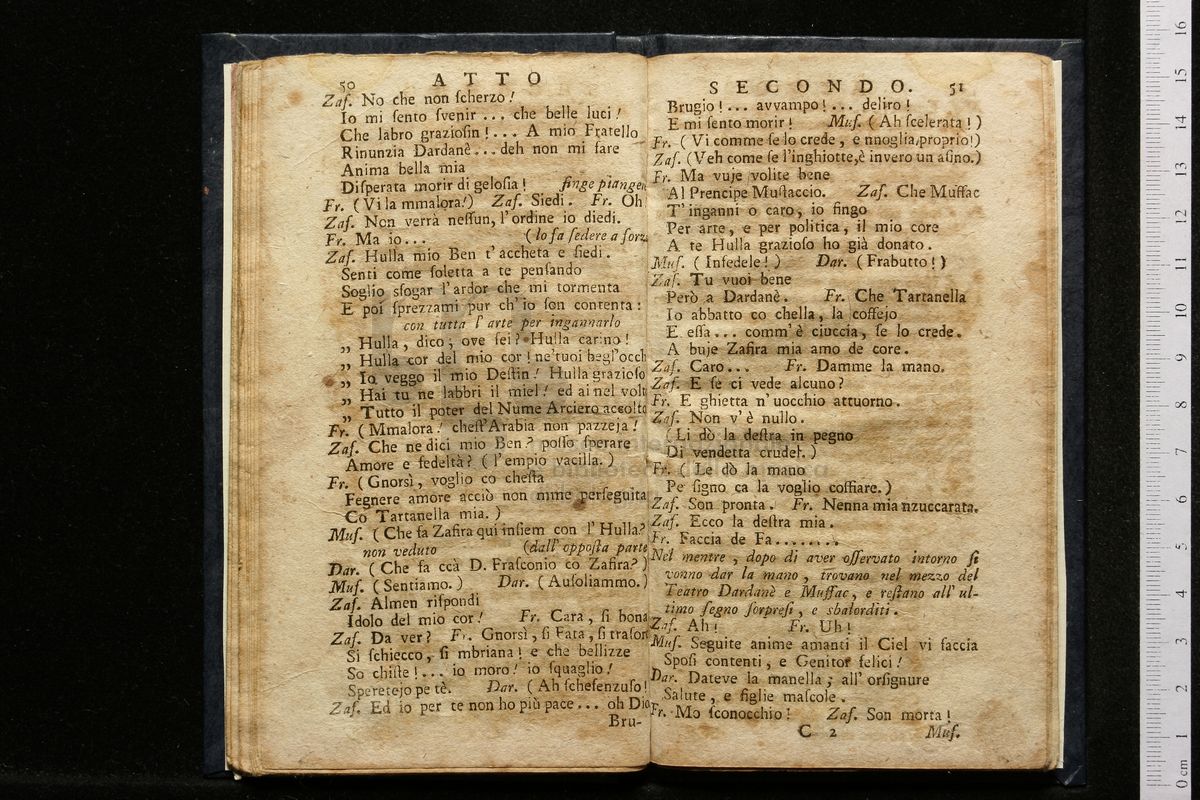 50 ATTO
Zaf. No che non ſcherzo!
Io mi ſento ſvenir ... che belle luci!
Che labro grazioſin!... A mio Fratello
Rinunzia Dardanè... deh non mi fare
Anima bella mia
Diſperata morir di geloſia! finge piangere
Fr. (Vi la mmalora!) Zaf. Siedi. Fr. Oh
Zaf. Non verrà neſſun, l'ordine io diedi.
Fr. Ma io... (lo fa ſedere a forz
Zaf. Hulla mio Ben t'accheta e ſiedi.
Senti come ſoletta a te penſando
Soglio sfogar l'ardor che mi tormenta
E poi ſprezzami pur ch'io ſon contenta:
con tutta l'arte per ingannarlo
„ Hulla, dico; ove ſei? Hulla carino!
„ Hulla cor del mio cor! ne'tuoi begl'occh
„ Io veggo il mio Deſtin! Hulla grazioſo
„ Hai tu ne labbri il miel! ed ai nel volt
„ Tutto il poter del Nume Arciero accolto
Fr. (Mmalora! cheſt'Arabia non pazzeja!
Zaf. Che ne dici mio Ben? poſſo ſperare
Amore e fedeltà? (l'empio vacilla.)
Fr. (Gnorsì, voglio co cheſta
Fegnere amore acciò non mme perſeguita
Co Tartanella mia.)
Muſ. (Che fa Zafira qui inſiem con l'Hulla?
non veduto (dall'oppoſta parte
Dar. (Che fa ccà D. Fraſconio co Zafira?)
Muſ. (Sentiamo.) Dar. (Auſoliammo.)
Zaf. Almen riſpondi
Idolo del mio cor! Fr. Cara, ſi bona
Zaf. Da ver? Fr. Gnorsì, ſi Fata, ſi traſor
Si ſchiecco, ſi mbriana! e che bellizze
So chiſte!... io moro! io ſquaglio!
Speretejo pe tè. Dar. (Ah ſcheſenzuſo!
Zaf. Ed io per te non ho più pace... oh Dio
Bru-
SECONDO. 51
Brugio!... avvampo!... deliro!
E mi ſento morir! Muſ. (Ah ſcelerata!)
Fr. (Vi comme ſe lo crede, e nnoglia, proprio!)
Zaf. (Veh come ſe l'inghiotte, è invero un aſino.)
Fr. Ma vuje volite bene
Al Prencipe Muſtaccio. Zaf. Che Muffac
T'inganni o caro, io fingo
Per arte, e per politica, il mio core
A te Hulla grazioſo ho già donato.
Muſ. (Infedele!) Dar. (Frabutto!)
Zaf. Tu vuoi bene
Però a Dardanè. Fr. Che Tartanella
Io abbatto co chella, la coffejo
E eſſa... comm'è ciuccia, ſe lo crede.
A buje Zafira mia amo de core.
Zaf. Caro... Fr. Damme la mano.
Zaf. E ſe ci vede alcuno?
Fr. E ghietta n'uocchio attuorno.
Zaf. Non v'è nullo.
(Li dò la deſtra in pegno
Di vendetta crudel.)
Fr. (Le dò la mano
Pe ſigno ca la voglio coffiare.)
Zaf. Son pronta. Fr. Nenna mia nzuccarata.
Zaf. Ecco la deſtra mia.
Fr. Faccia de Fa........
Nel mentre, dopo di aver oſſervato intorno ſi
vonno dar la mano, trovano nel mezzo del
Teatro Dardanè e Muffac, e reſtano all'ul-
timo ſegno ſorpreſi, e sbalorditi.
Zaf. Ah! Fr. Uh!
Muſ. Seguite anime amanti il Ciel vi faccia
Spoſi contenti, e Genitor felici!
Dar. Dateve la manella; all'orſignure
Salute, e figlie maſcole.
Fr. Mo ſconocchio! Zaf. Son morta!
C 2 Muſ.